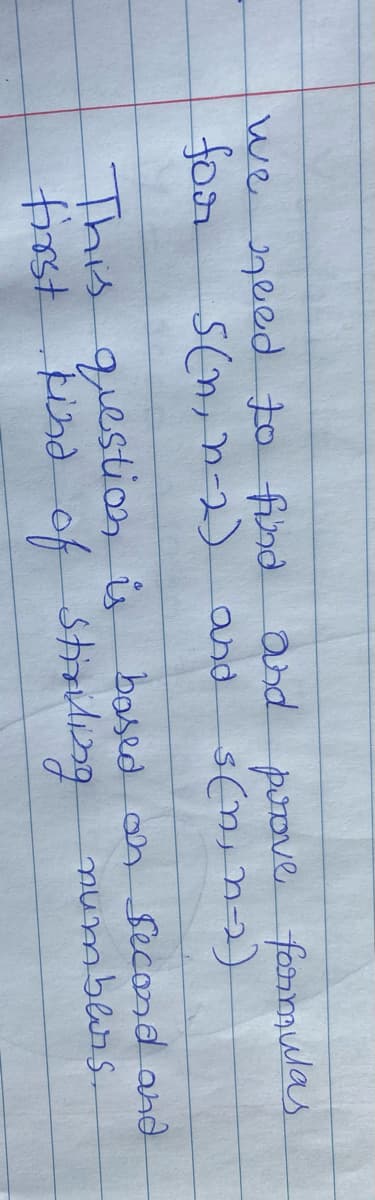 we need to find and prove formulas
for S(n, n-2) and s(n, n-2)
This question is based on second and
first kind of stirling numbers.